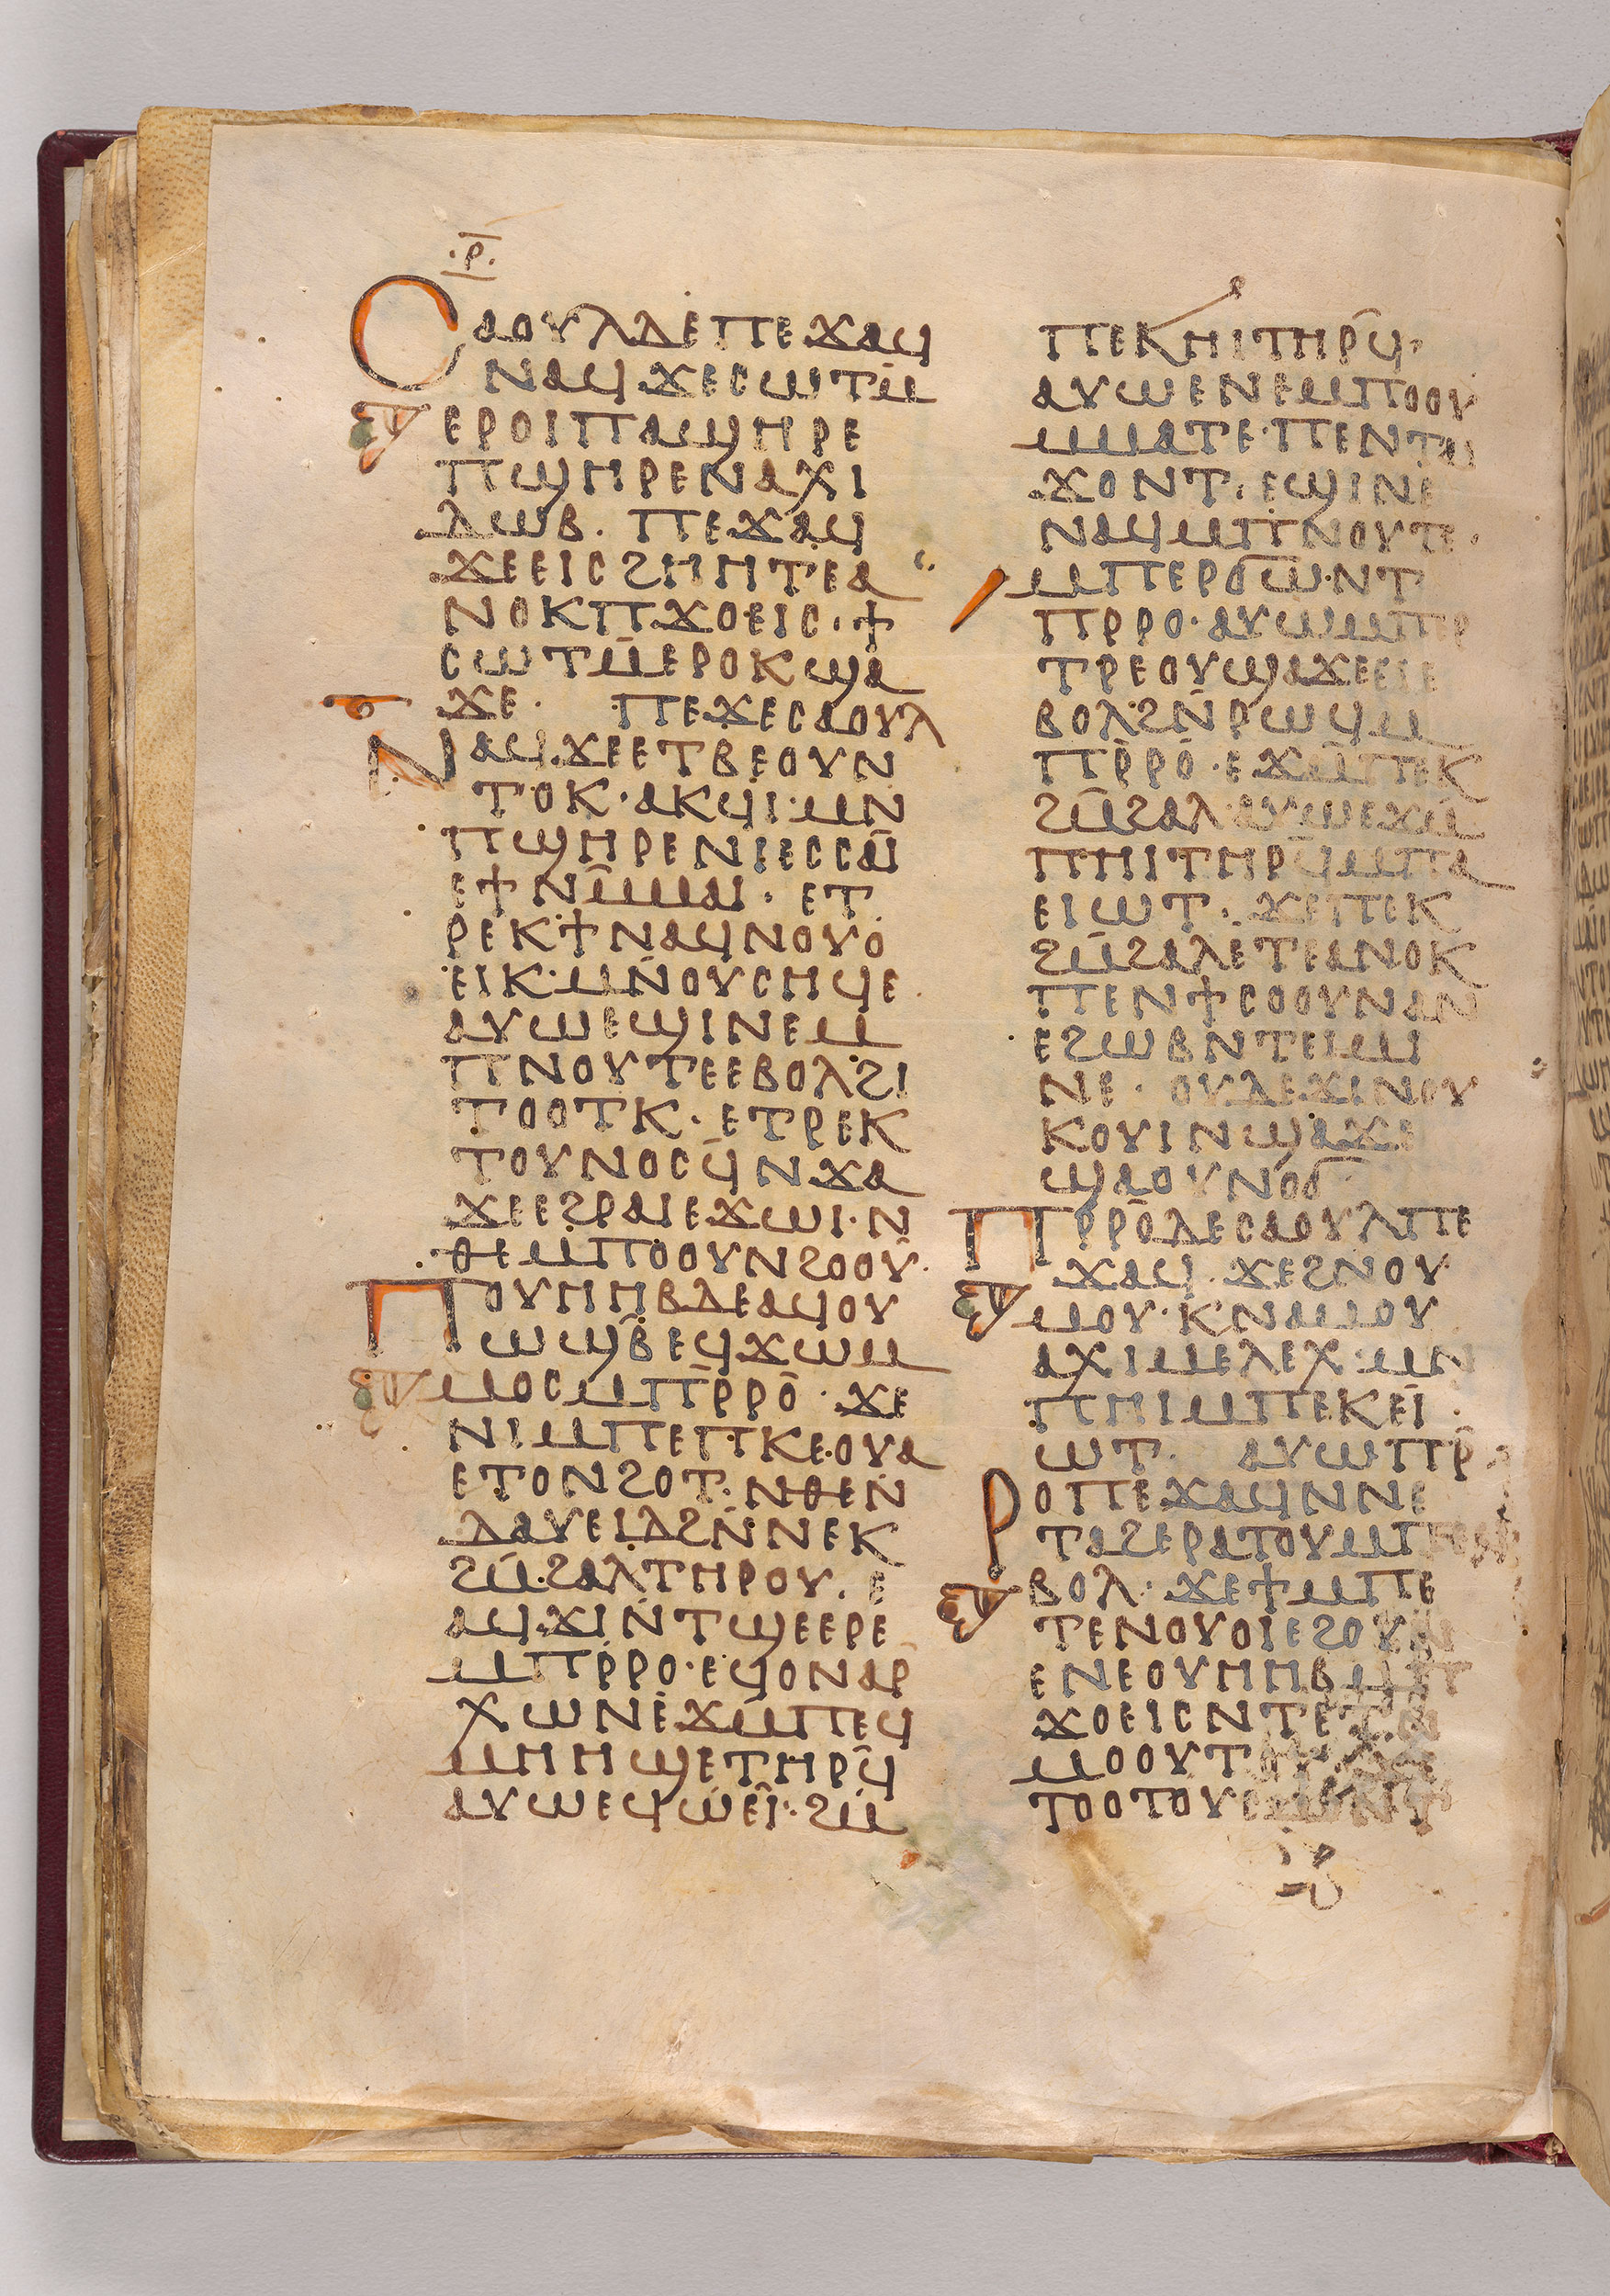 ·ⲣ̅·
Ⲥⲁⲟⲩⲗⲇⲉⲡⲉϫⲁϥ
ⲛⲁϥϫⲉⲥⲱⲧⲙ̄
ⲉⲣⲟⲓⲡⲁϣⲏⲣⲉ
ⲡϣⲏⲣⲉⲛⲁⲭⲓ
ⲇⲱⲃ· ⲡⲉϫⲁϥ
ϫⲉⲉⲓⲥϩⲏⲏⲧⲉⲁ
ⲛⲟⲕⲡϫⲟⲉⲓⲥ·ϯ
ⲥⲱⲧⲙ̄ⲉⲣⲟⲕϣⲁ
ϫⲉ· ⲡⲉϫⲉⲥⲁⲟⲩⲗ
Ⲛⲁϥϫⲉⲉⲧⲃⲉⲟⲩⲛ
ⲧⲟⲕ·ⲁⲕϥⲓ·ⲙⲛ
ⲡϣⲏⲣⲉⲛⲓⲉⲥⲥⲁⲓ̈
ⲉϯⲛⲙ̄ⲙⲁⲓ· ⲉⲧ
ⲣⲉⲕϯⲛⲁϥⲛⲟⲩⲟ
ⲉⲓⲕ·ⲙⲛ̄ⲟⲩⲥⲏϥⲉ
ⲁⲩⲱⲉϣⲓⲛⲉⲙ
ⲡⲛⲟⲩⲧⲉⲉⲃⲟⲗϩⲓ
ⲧⲟⲟⲧⲕ·ⲉⲧⲣⲉⲕ
ⲧⲟⲩⲛⲟⲥϥ̄ⲛϫⲁ
ϫⲉⲉϩⲣⲁⲓⲉϫⲱⲓ·ⲛ
ⲑⲉⲙⲡⲟⲟⲩⲛϩⲟⲟⲩ·
Ⲡⲟⲩⲏⲏⲃⲇⲉⲁϥⲟⲩ
ⲱϣⲃ̄ⲉϥϫⲱⲙ
ⲙⲟⲥⲙⲡⲣ̄ⲣⲟ̄· ϫⲉ
ⲛⲓⲙⲡⲉⲡⲕⲉⲟⲩⲁ
ⲉⲧⲟⲛϩⲟⲧ·ⲛⲑⲉⲛ
ⲇⲁⲩⲉⲓⲇϩⲛ̄ⲛⲉⲕ
ϩⲙ̄ϩⲁⲗⲧⲏⲣⲟⲩ· ⲉ
ⲁϥϫⲓⲛⲧϣⲉⲉⲣⲉ
ⲙⲡⲣ̄ⲣⲟ·ⲉϥⲟⲛⲁⲣ
ⲭⲱⲛⲉϫⲙ̄ⲡⲉϥ
ⲙⲏⲏϣⲉⲧⲏⲣϥ̄
ⲁⲩⲱⲉϥⲱⲉⲓ̈·ϩⲙ̄
ⲡⲉⲕⲏⲓⲧⲏⲣϥ̄·
ⲁⲩⲱⲉⲛⲉⲙⲡⲟⲟⲩ
ⲙⲙⲁⲧⲉ·ⲡⲉⲛⲧⲁⲓ
ϫⲟⲛⲧ·ⲉϣⲓⲛⲉ
ⲛⲁϥⲙⲡⲛⲟⲩⲧⲉ·
ⲙⲡⲉⲣϭⲱⲛⲧ
ⲡⲣⲣⲟ·ⲁⲩⲱⲙⲡⲉⲣ
ⲧⲣⲉⲟⲩϣⲁϫⲉⲉⲓⲉ
ⲃⲟⲗϩⲛ̄ⲣⲱϥⲙ
ⲡⲣ̄ⲣⲟ̄·ⲉϫⲙ̄ⲡⲉⲕ
ϩⲙ̄ϩⲁⲗ·ⲁⲩⲱⲉϫⲙ̄
ⲡⲏⲓⲧⲏⲣϥ̄ⲙⲡⲁ
ⲉⲓⲱⲧ· ϫⲉⲡⲉⲕ
ϩⲙ̄ϩⲁⲗⲉⲧⲉⲁⲛⲟⲕ
ⲡⲉⲛϯⲥⲟⲟⲩⲛⲁⲛ
ⲉϩⲱⲃⲛⲧⲉⲓⲙⲓ
ⲛⲉ· ⲟⲩⲇⲉϫⲓⲛⲟⲩ
ⲕⲟⲩⲓⲛϣⲁϫⲉ
ϣⲁⲟⲩⲛⲟϭ
Ⲡⲣ̄ⲣⲟ̄ⲇⲉⲥⲁⲟⲩⲗⲡⲉ
ϫⲁϥ·ϫⲉϩⲛⲟⲩ
ⲙⲟⲩ·ⲕⲛⲁⲙⲟⲩ
ⲁⲭⲓⲙⲉⲗⲉⲭ·ⲙⲛ
ⲡⲏⲓⲙⲡⲉⲕⲉⲓ̈
ⲱⲧ· ⲁⲩⲱⲡⲣ̄
Ⲣⲟⲡⲉϫⲁϥⲛⲛⲉ
ⲧⲁϩⲉⲣⲁⲧⲟⲩⲙⲡ
ⲃⲟⲗ·ϫⲉϯⲙⲡⲉ
ⲧⲉⲛⲟⲩⲟⲓⲉϩⲟⲩⲛ
ⲉⲛⲉⲟⲩⲏⲏⲃⲙⲡ
ϫⲟⲉⲓⲥⲛⲧⲉⲧⲛ
ⲙⲟⲟⲩⲧ
ⲧⲟⲟⲧⲟⲩ